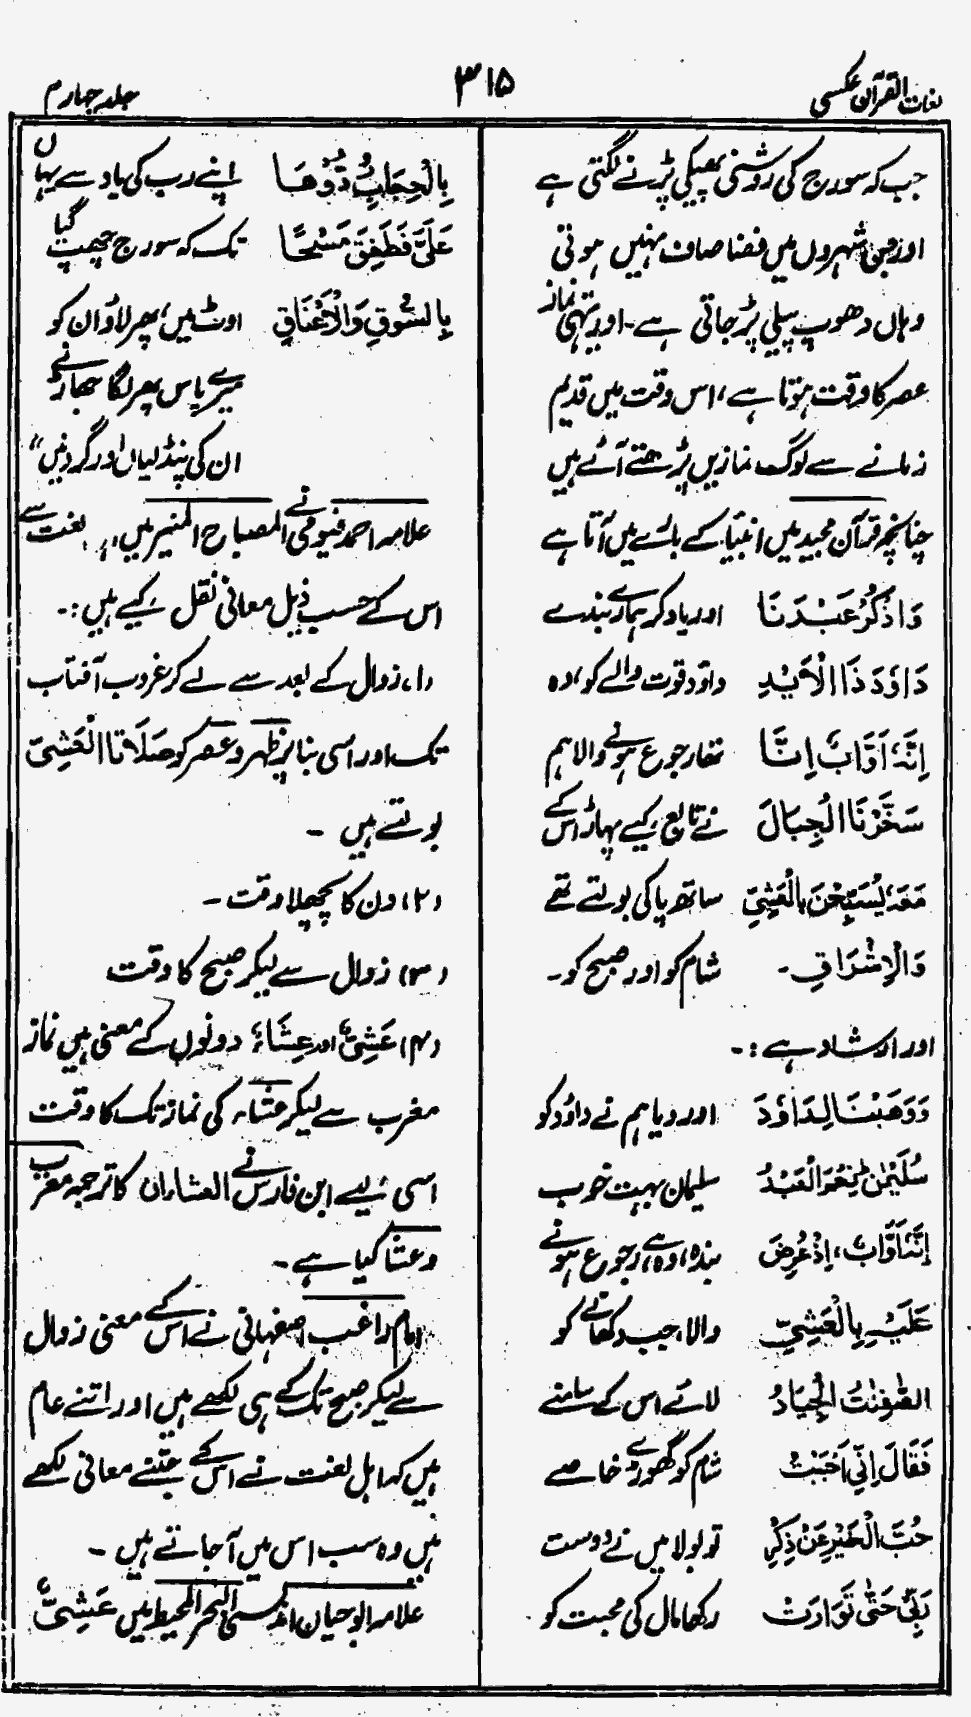 لغات القرآن عکسی
۳۱۵
جلد چہارم
جب کہ سورج کی روشنی پھیکی پڑنے لگتی ہے
اور جن شہروں میں فضا صاف نہیں ہوتی
وہاں دھوپ پیلی پڑ جاتی ہے۔ اور یہی نماز
عصر کا وقت ہوتا ہے، اس وقت میں قدیم
زمانے سے لوگ نمازیں پڑھتے آئے ہیں
چنانچہ قرآن مجید میں انبیا کے بارے میں آتا ہے
وَاذْكُرْ عَبْدَنَا اور یاد کر ہمارے بندے
دَاوٗدَ ذَا الْاَيْدِ داؤد قوت والے کو، وہ
اِنَّهٗ اَوَّابٌ اِنَّا تھا رجوع ہونے والا ہم
سَخَّرْنَا الْجِبَالَ نے تابع کیے پہاڑ اس کے
مَعَهٗ يُسَبِّحْنَ بِالْعَشِيِّ ساتھ پاکی بولتے تھے
وَالْاِشْرَاقِ۔ شام کو اور صبح کو۔
اور ارشاد ہے :۔
وَوَهَبْنَا لِدَاوٗدَ اور دیا ہم نے داؤد کو
سُلَيْمٰنَ نِعْمَ الْعَبْدُ سلیمان بہت خوب
اِنَّهٗ اَوَّابٌ، اِذْ عُرِضَ بندہ، وہ ہے رجوع ہونے
عَلَيْهِ بِالْعَشِيِّ والا، جب دکھانے کو
الصّٰفِنٰتُ الْجِيَادُ لائے اس کے سامنے
فَقَالَ اِنِّيْ اَحْبَبْتُ شام کو گھوڑے خاصے
حُبَّ الْخَيْرِ عَنْ ذِكْرِ تو بولا میں نے دوست
رَبِّيْ حَتّٰى تَوَارَتْ رکھا مال کی محبت کو
بِالْحِجَابِ رُدُّوْهَا اپنے رب کی یاد سے یہاں
عَلَيَّ فَطَفِقَ مَسْحًا تک کہ سورج چھپ گیا
بِالسُّوْقِ وَالْاَعْنَاقِ اوٹ میں، پھر لاؤ ان کو
میرے پاس پھر لگا جھاڑنے
ان کی پنڈلیاں اور گردنیں"
علامہ احمد فیومی نے المصباح المنیر میں، لغت سے
اس کے حسب ذیل معانی نقل کیے ہیں :۔
(۱) زوال کے بعد سے لے کر غروب آفتاب
تک اور اسی بنا پر ظہر و عصر کو صَلَاتَا الْعَشِيّ
بولتے ہیں ۔
(۲) دن کا پچھلا وقت ۔
(۳) زوال سے لیکر صبح کا وقت
(۴) عَشِيٌّ اور عِشَاءٌ دونوں کے معنی ہیں نماز
مغرب سے لیکر عشاء کی نماز تک کا وقت
اسی لیے ابن فارس نے العشاءان کا ترجمہ مغرب
و عشا کیا ہے ۔
امام راغب اصفہانی نے اس کے معنی زوال
سے لیکر صبح تک کے ہی لکھے ہیں اور اتنے عام
ہیں کہ اہل لغت نے اس کے جتنے معانی لکھے
ہیں وہ سب اس میں آ جاتے ہیں ۔
علامہ ابو حیان اندلسی البحر المحیط میں عَشِيٌّ